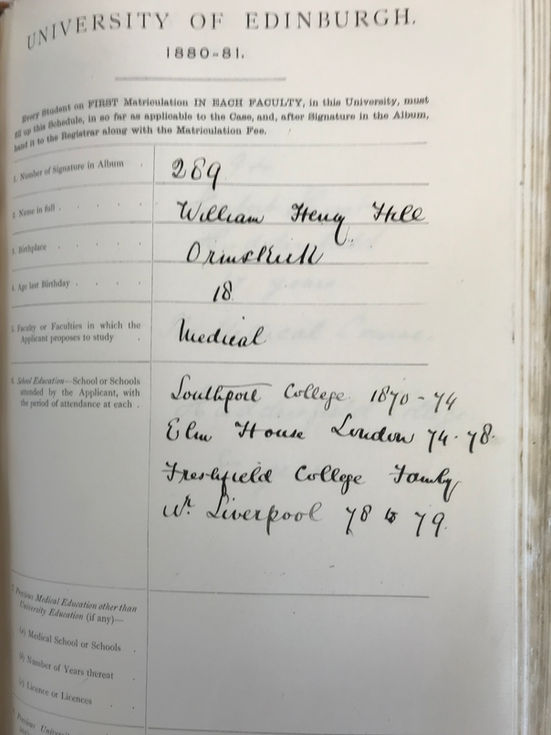 UNIVERSITY OF EDINBURGH.
1880-81.
Every Student on FIRST Matriculation IN EACH FACULTY, in this University, must
fill up this Schedule, in so far as applicable to the Case, and, after Signature in the Album,
hand it to the Registrar along with the Matriculation Fee.
1. Number of Signature in Album . 289
2. Name in full . . . . . William Henry Hill
3. Birthplace . . . . . Ormskirk
4. Age last Birthday . . . . 18
5. Faculty or Faculties in which the
Applicant proposes to study . Medical
6. School Education—School or Schools
attended by the Applicant, with
the period of attendance at each .
Southport College 1870-74
Elm House London 74-78.
Freshfield College
Nr. Liverpool 78 to 79.
7. Previous Medical Education other than
University Education (if any)—
(a) Medical School or Schools .
(b) Number of Years thereat .
(c) Licence or Licences .